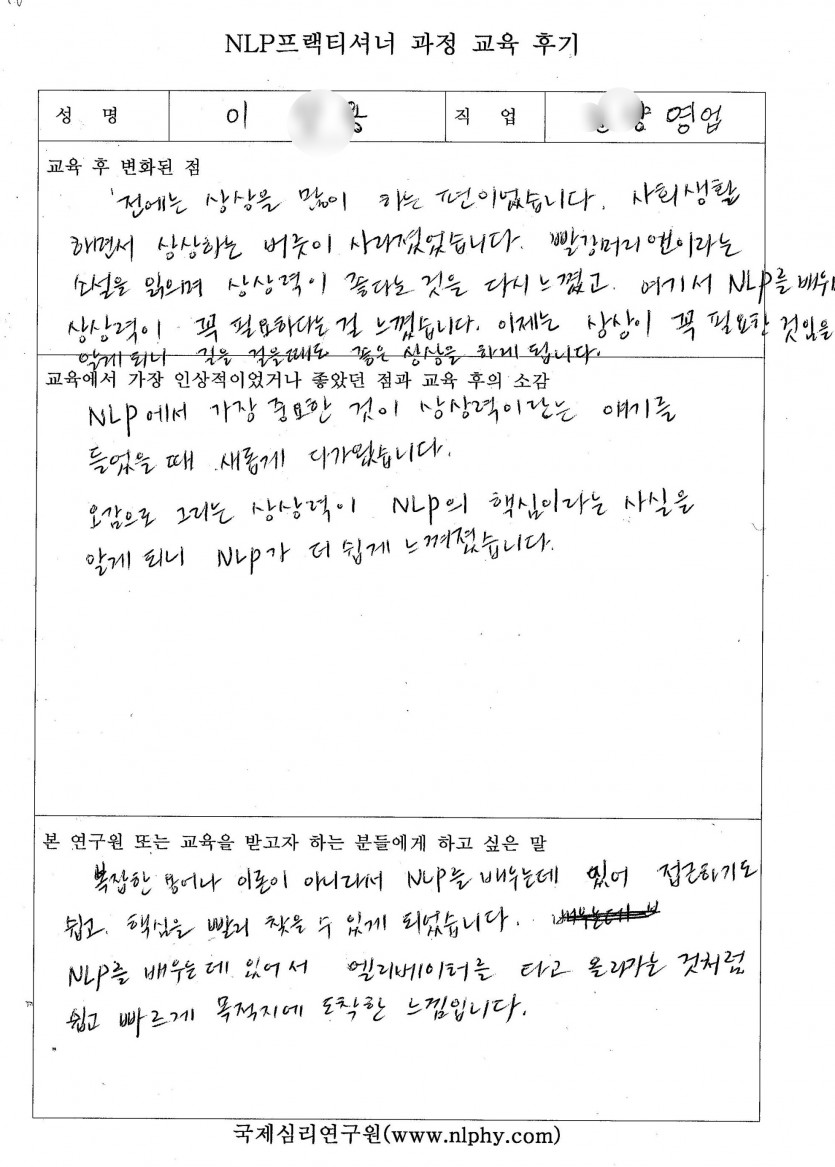 NLP프랙티셔너 과정 교육 후기
성 명 이 용 직 업 영업
교육 후 변화된 점
전에는 상상을 많이 하는 편이었습니다. 사회생활
하면서 상상하는 버릇이 사라졌었습니다. 빨강머리앤이라는
소설을 읽으며 상상력이 좋다는 것을 다시 느꼈고. 여기서 NLP를 배우니
상상력이 꼭 필요하다는 걸 느꼈습니다. 이제는 상상이 꼭 필요한 것임을
알게 되니 길을 걸을때도 좋은 상상을 하게 됩니다.
교육에서 가장 인상적이었거나 좋았던 점과 교육 후의 소감
NLP에서 가장 중요한 것이 상상력이란는 얘기를
들었을 때 새롭게 다가왔습니다.
오감으로 그리는 상상력이 NLP의 핵심이라는 사실을
알게 되니 NLP가 더 쉽게 느껴졌습니다.
본 연구원 또는 교육을 받고자 하는 분들에게 하고 싶은 말
복잡한 용어나 이론이 아니라서 NLP를 배우는데 있어 접근하기도
쉽고. 핵심을 빨리 찾을 수 있게 되었습니다.
NLP를 배우는데 있어서 엘리베이터를 타고 올라가는 것처럼
쉽고 빠르게 목적지에 도착한 느낌입니다.
국제심리연구원(www.nlphy.com)